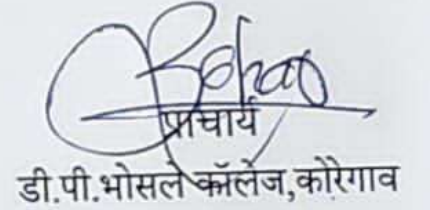 प्राचार्य
डी.पी.भोसले कॉलेज,कोरेगाव